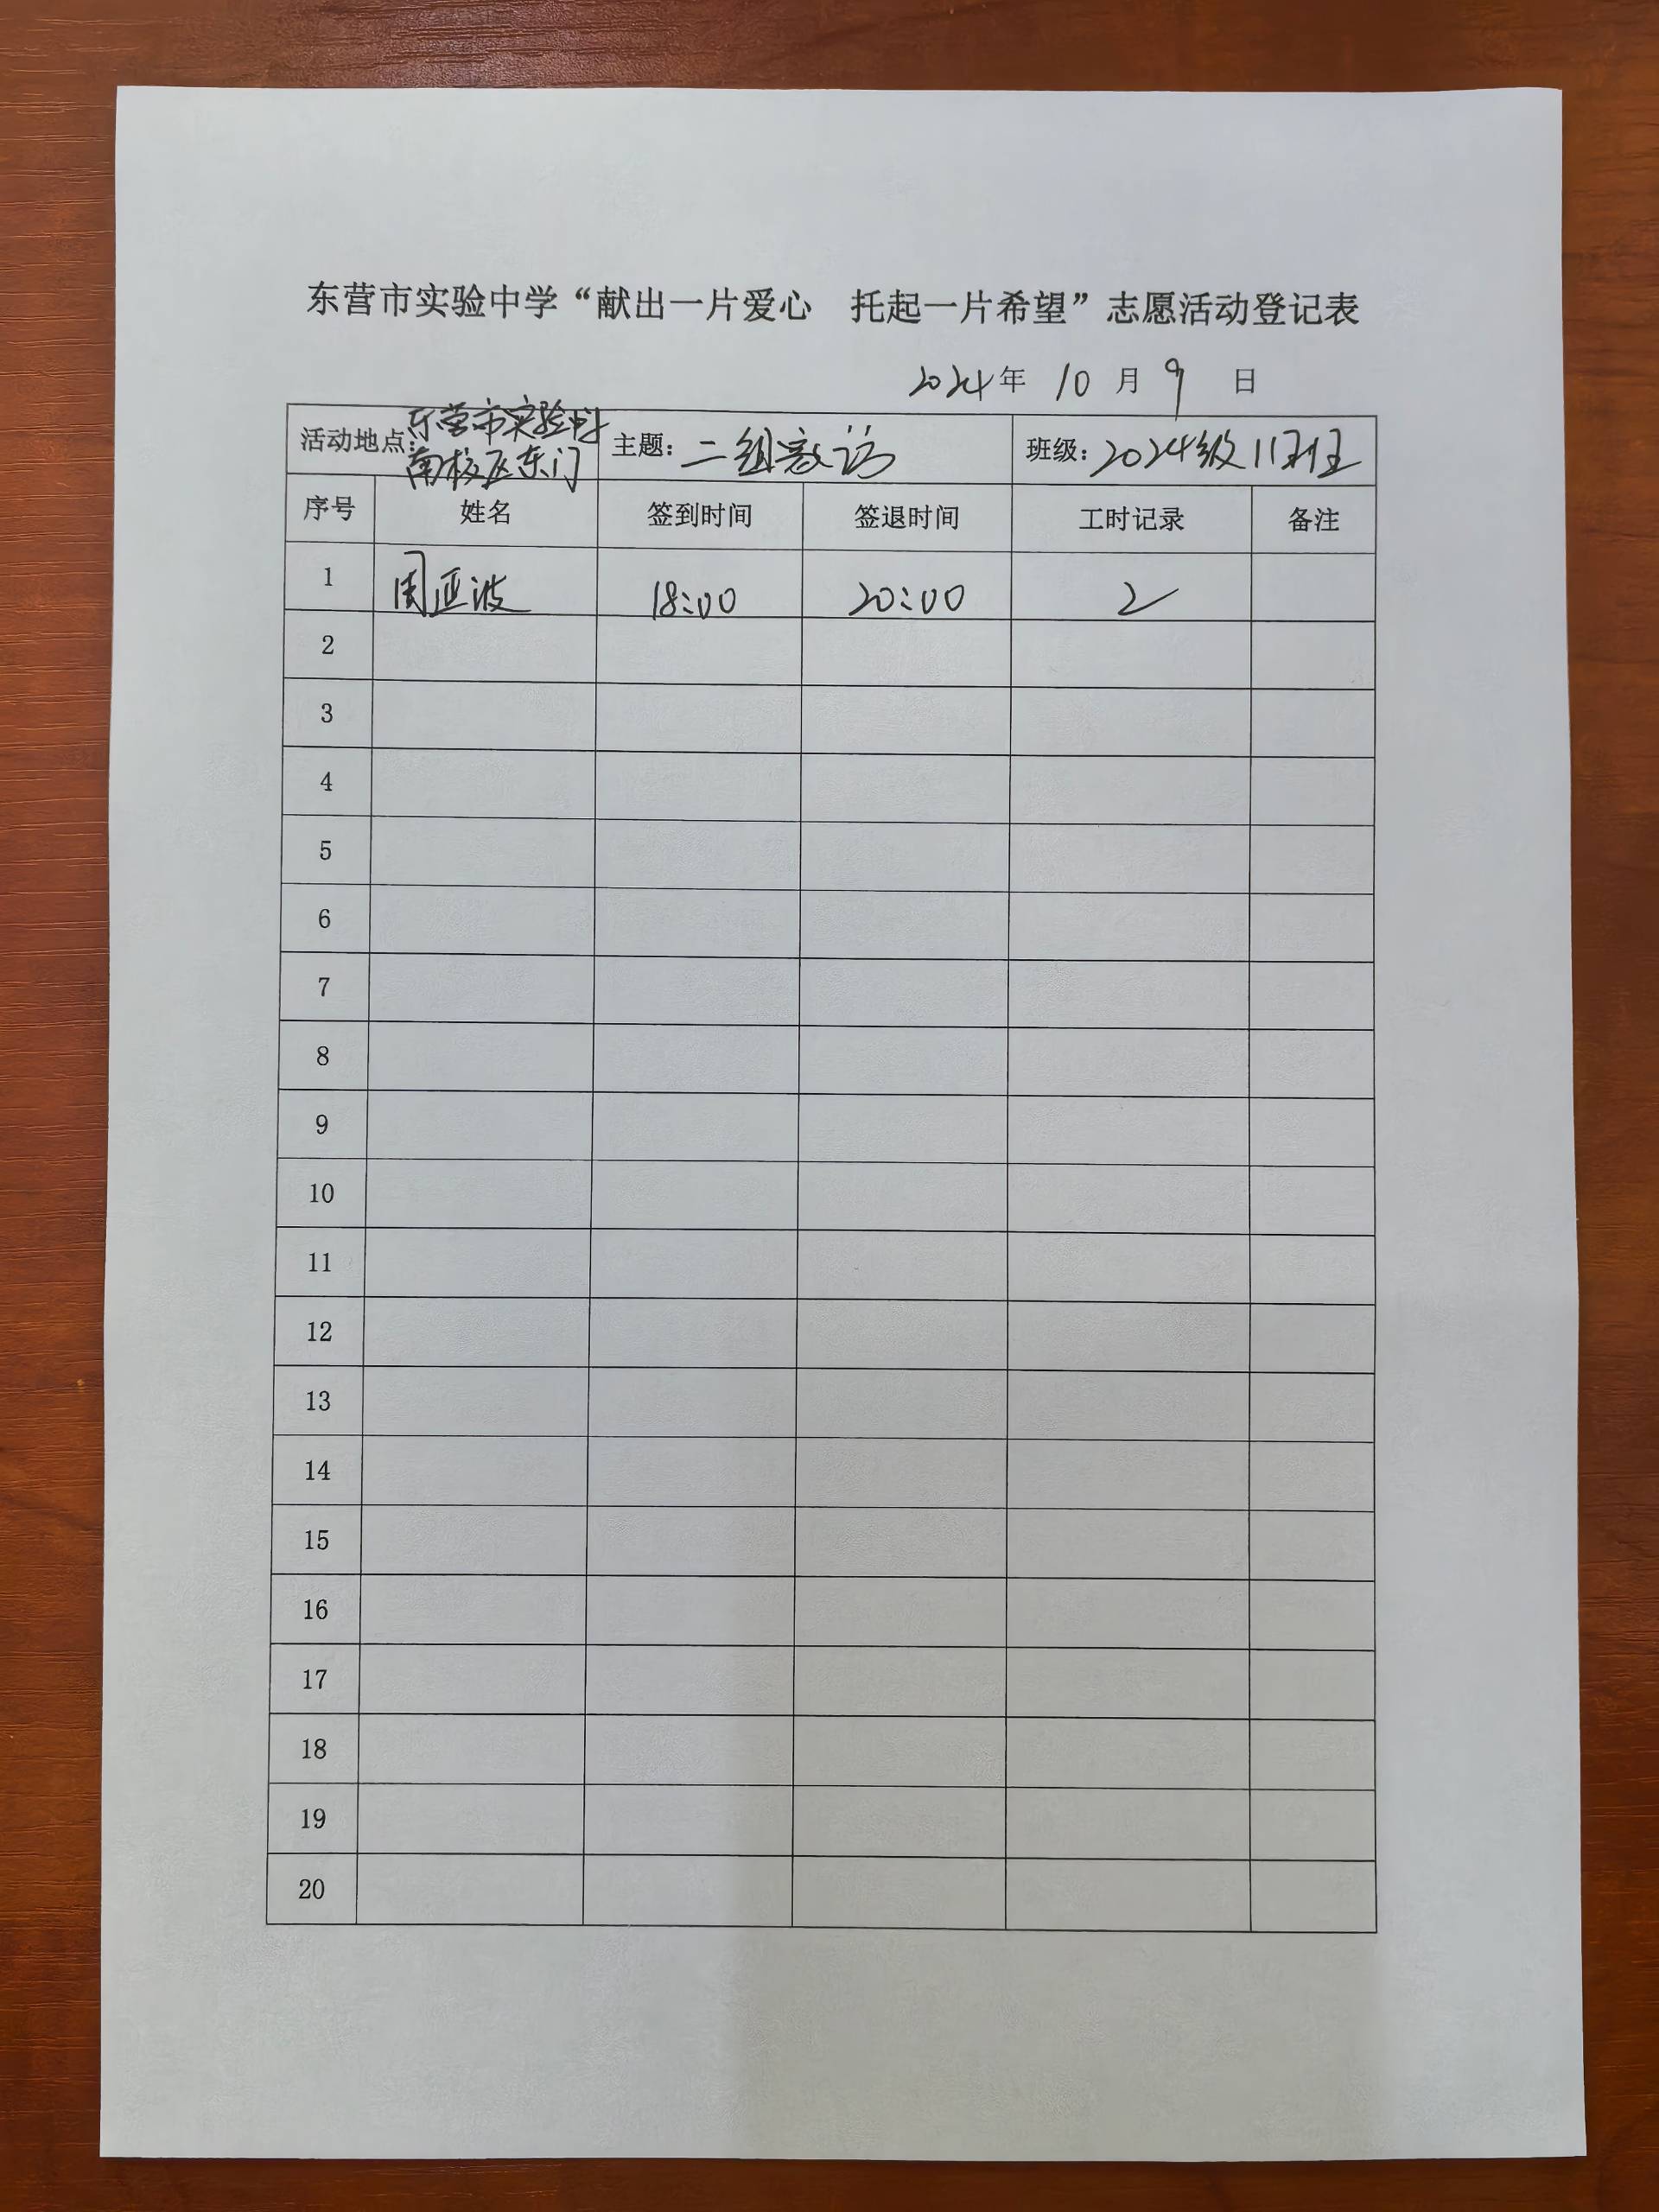 东营市实验中学“献出一片爱心 托起一片希望”志愿活动登记表
2024年 10 月 9 日
活动地点: 东营市实验中学 南校区东门 主题: 二组家访 班级: 2024级11班
序号 姓名 签到时间 签退时间 工时记录 备注
1 周亚波 18:00 20:00 2
2
3
4
5
6
7
8
9
10
11
12
13
14
15
16
17
18
19
20